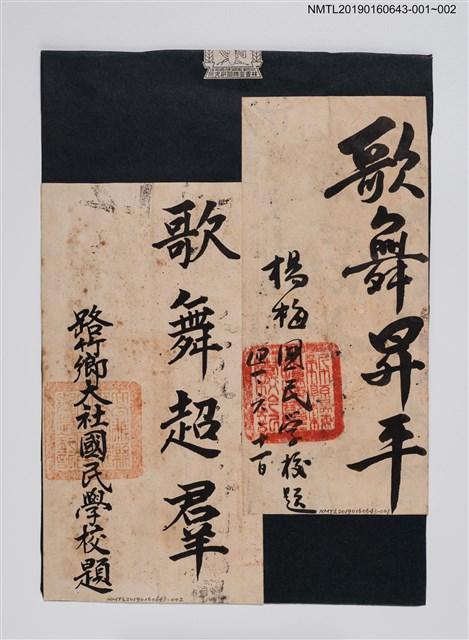 NMTL20190160643-001~002
歌舞昇平
楊梅國民学校題
四一、六、十一日
NMTL20190160643-001
歌舞超群
路竹鄉大社國民學校題
NMTL20190160643-002